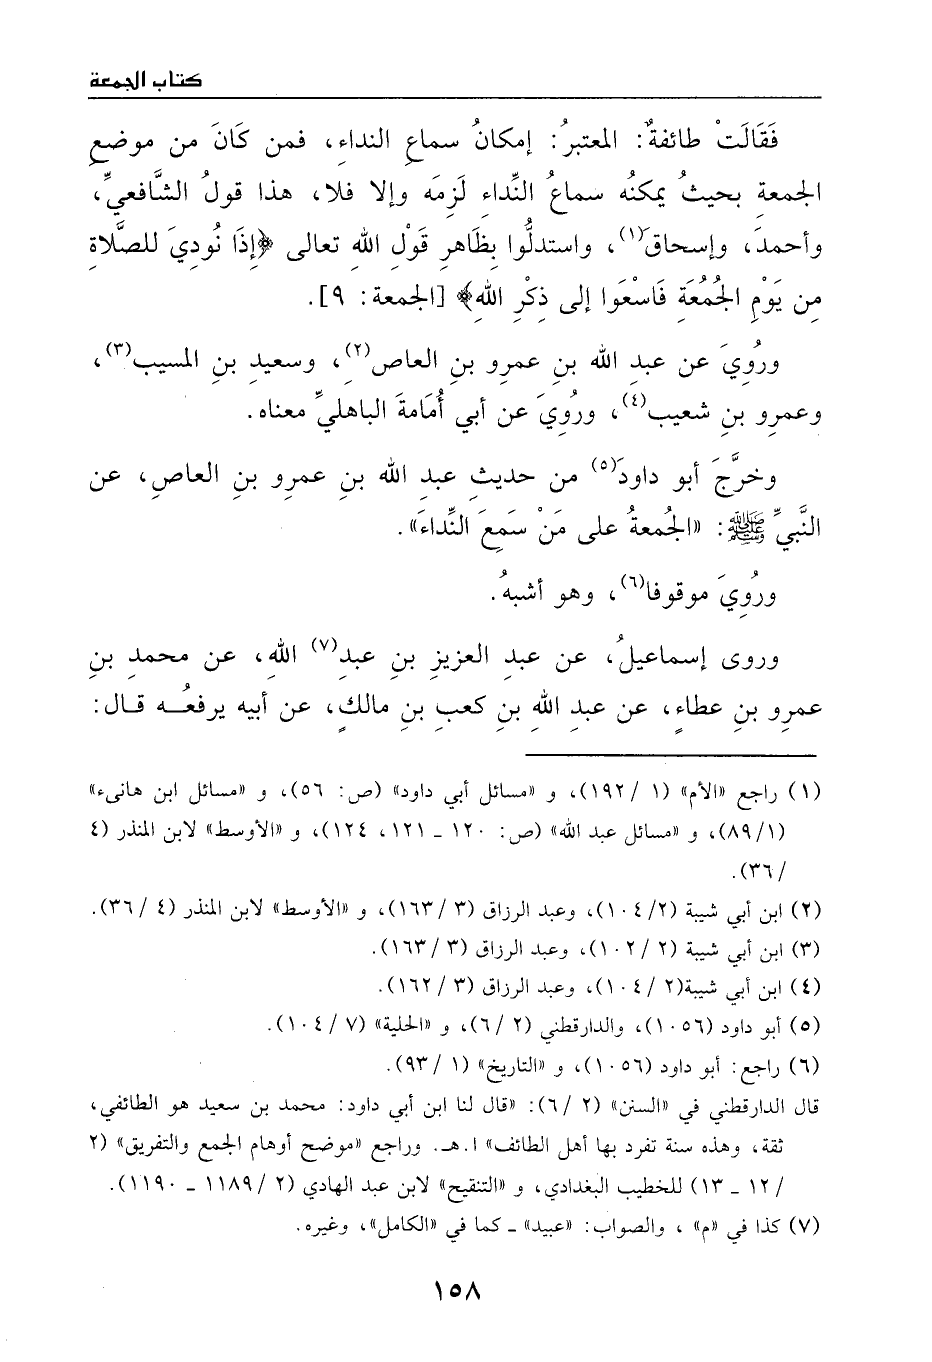 كتاب الجمعة
فَقَالَتْ طائفةٌ: المعتبرُ: إمكانُ سماعِ النداءِ، فمن كَانَ من موضعِ
الجمعةِ بحيثُ يمكنُه سماعُ النِّداءِ لَزِمَه وإلا فلا، هذا قولُ الشَّافعيِّ،
وأحمدَ، وإسحاقَ(١)، واستدلُّوا بِظَاهرِ قَوْلِ اللهِ تعالى ﴿إِذَا نُودِيَ للصَّلاةِ
مِن يَوْمِ الجُمُعَةِ فَاسْعَوا إلى ذِكْرِ اللهِ﴾ [الجمعة: ٩].
ورُوِيَ عن عبدِ اللهِ بنِ عمرِو بنِ العاصِ(٢)، وسعيدِ بنِ المسيبِ(٣)،
وعمرِو بنِ شعيبٍ(٤)، ورُوِيَ عن أبي أُمَامةَ الباهليِّ معناه.
وخرَّجَ أبو داودَ(٥) من حديثِ عبدِ اللهِ بنِ عمرِو بنِ العاصِ، عن
النَّبيِّ ﷺ: «الجُمعةُ على مَنْ سَمِعَ النِّداءَ».
ورُوِيَ موقوفا(٦)، وهو أشبهُ.
وروى إسماعيلُ، عن عبدِ العزيزِ بنِ عبدِ(٧) اللهِ، عن محمدِ بنِ
عمرِو بنِ عطاءٍ، عن عبدِ اللهِ بنِ كعبِ بنِ مالكٍ، عن أبيه يرفعُـــه قـال:
(١) راجع «الأم» (١ /١٩٢)، و «مسائل أبي داود» (ص: ٥٦)، و «مسائل ابن هانىء»
(١/ ٨٩)، و «مسائل عبد الله» (ص: ١٢٠ ـ ١٢١، ١٢٤)، و «الأوسط» لابن المنذر (٤
/ ٣٦).
(٢) ابن أبي شيبة (٢/ ١٠٤)، وعبد الرزاق (٣ / ١٦٣)، و «الأوسط» لابن المنذر (٤ / ٣٦).
(٣) ابن أبي شيبة (٢ / ١٠٢)، وعبد الرزاق (٣ / ١٦٣).
(٤) ابن أبي شيبة(٢ / ١٠٤)، وعبد الرزاق (٣ / ١٦٢).
(٥) أبو داود (١٠٥٦)، والدارقطني (٢ / ٦)، و «الحلية» (٧ / ١٠٤).
(٦) راجع: أبو داود (١٠٥٦)، و «التاريخ» (١ / ٩٣).
قال الدارقطني في «السنن» (٢ / ٦): «قال لنا ابن أبي داود: محمد بن سعيد هو الطائفي،
ثقة، وهذه سنة تفرد بها أهل الطائف» ا.هـ. وراجع «موضح أوهام الجمع والتفريق» (٢
/ ١٢ ـ ١٣) للخطيب البغدادي، و «التنقيح» لابن عبد الهادي (٢ / ١١٨٩ ـ ١١٩٠).
(٧) كذا في «م» ، والصواب: «عبيد» ـ كما في «الكامل»، وغيره.
١٥٨